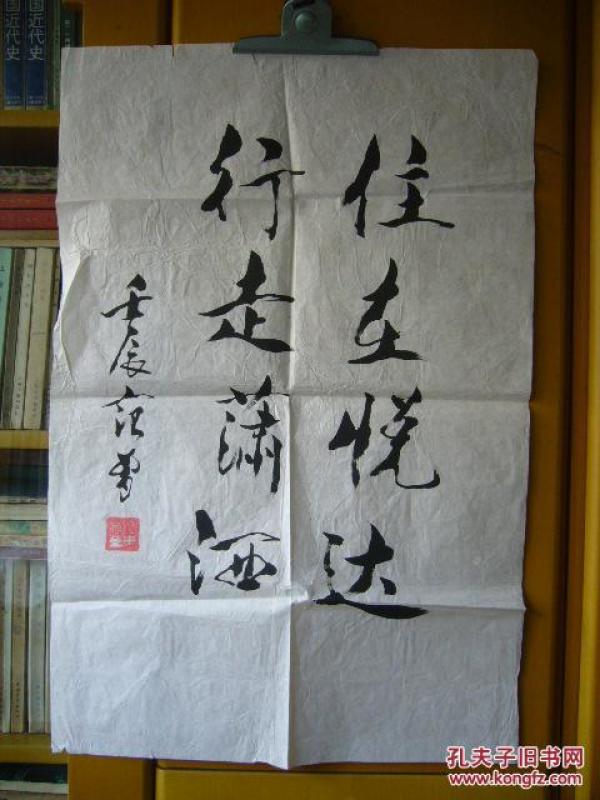 住在悦达
行走潇洒
壬辰
国近代史
国近代史
孔夫子旧书网
www.kongfz.com